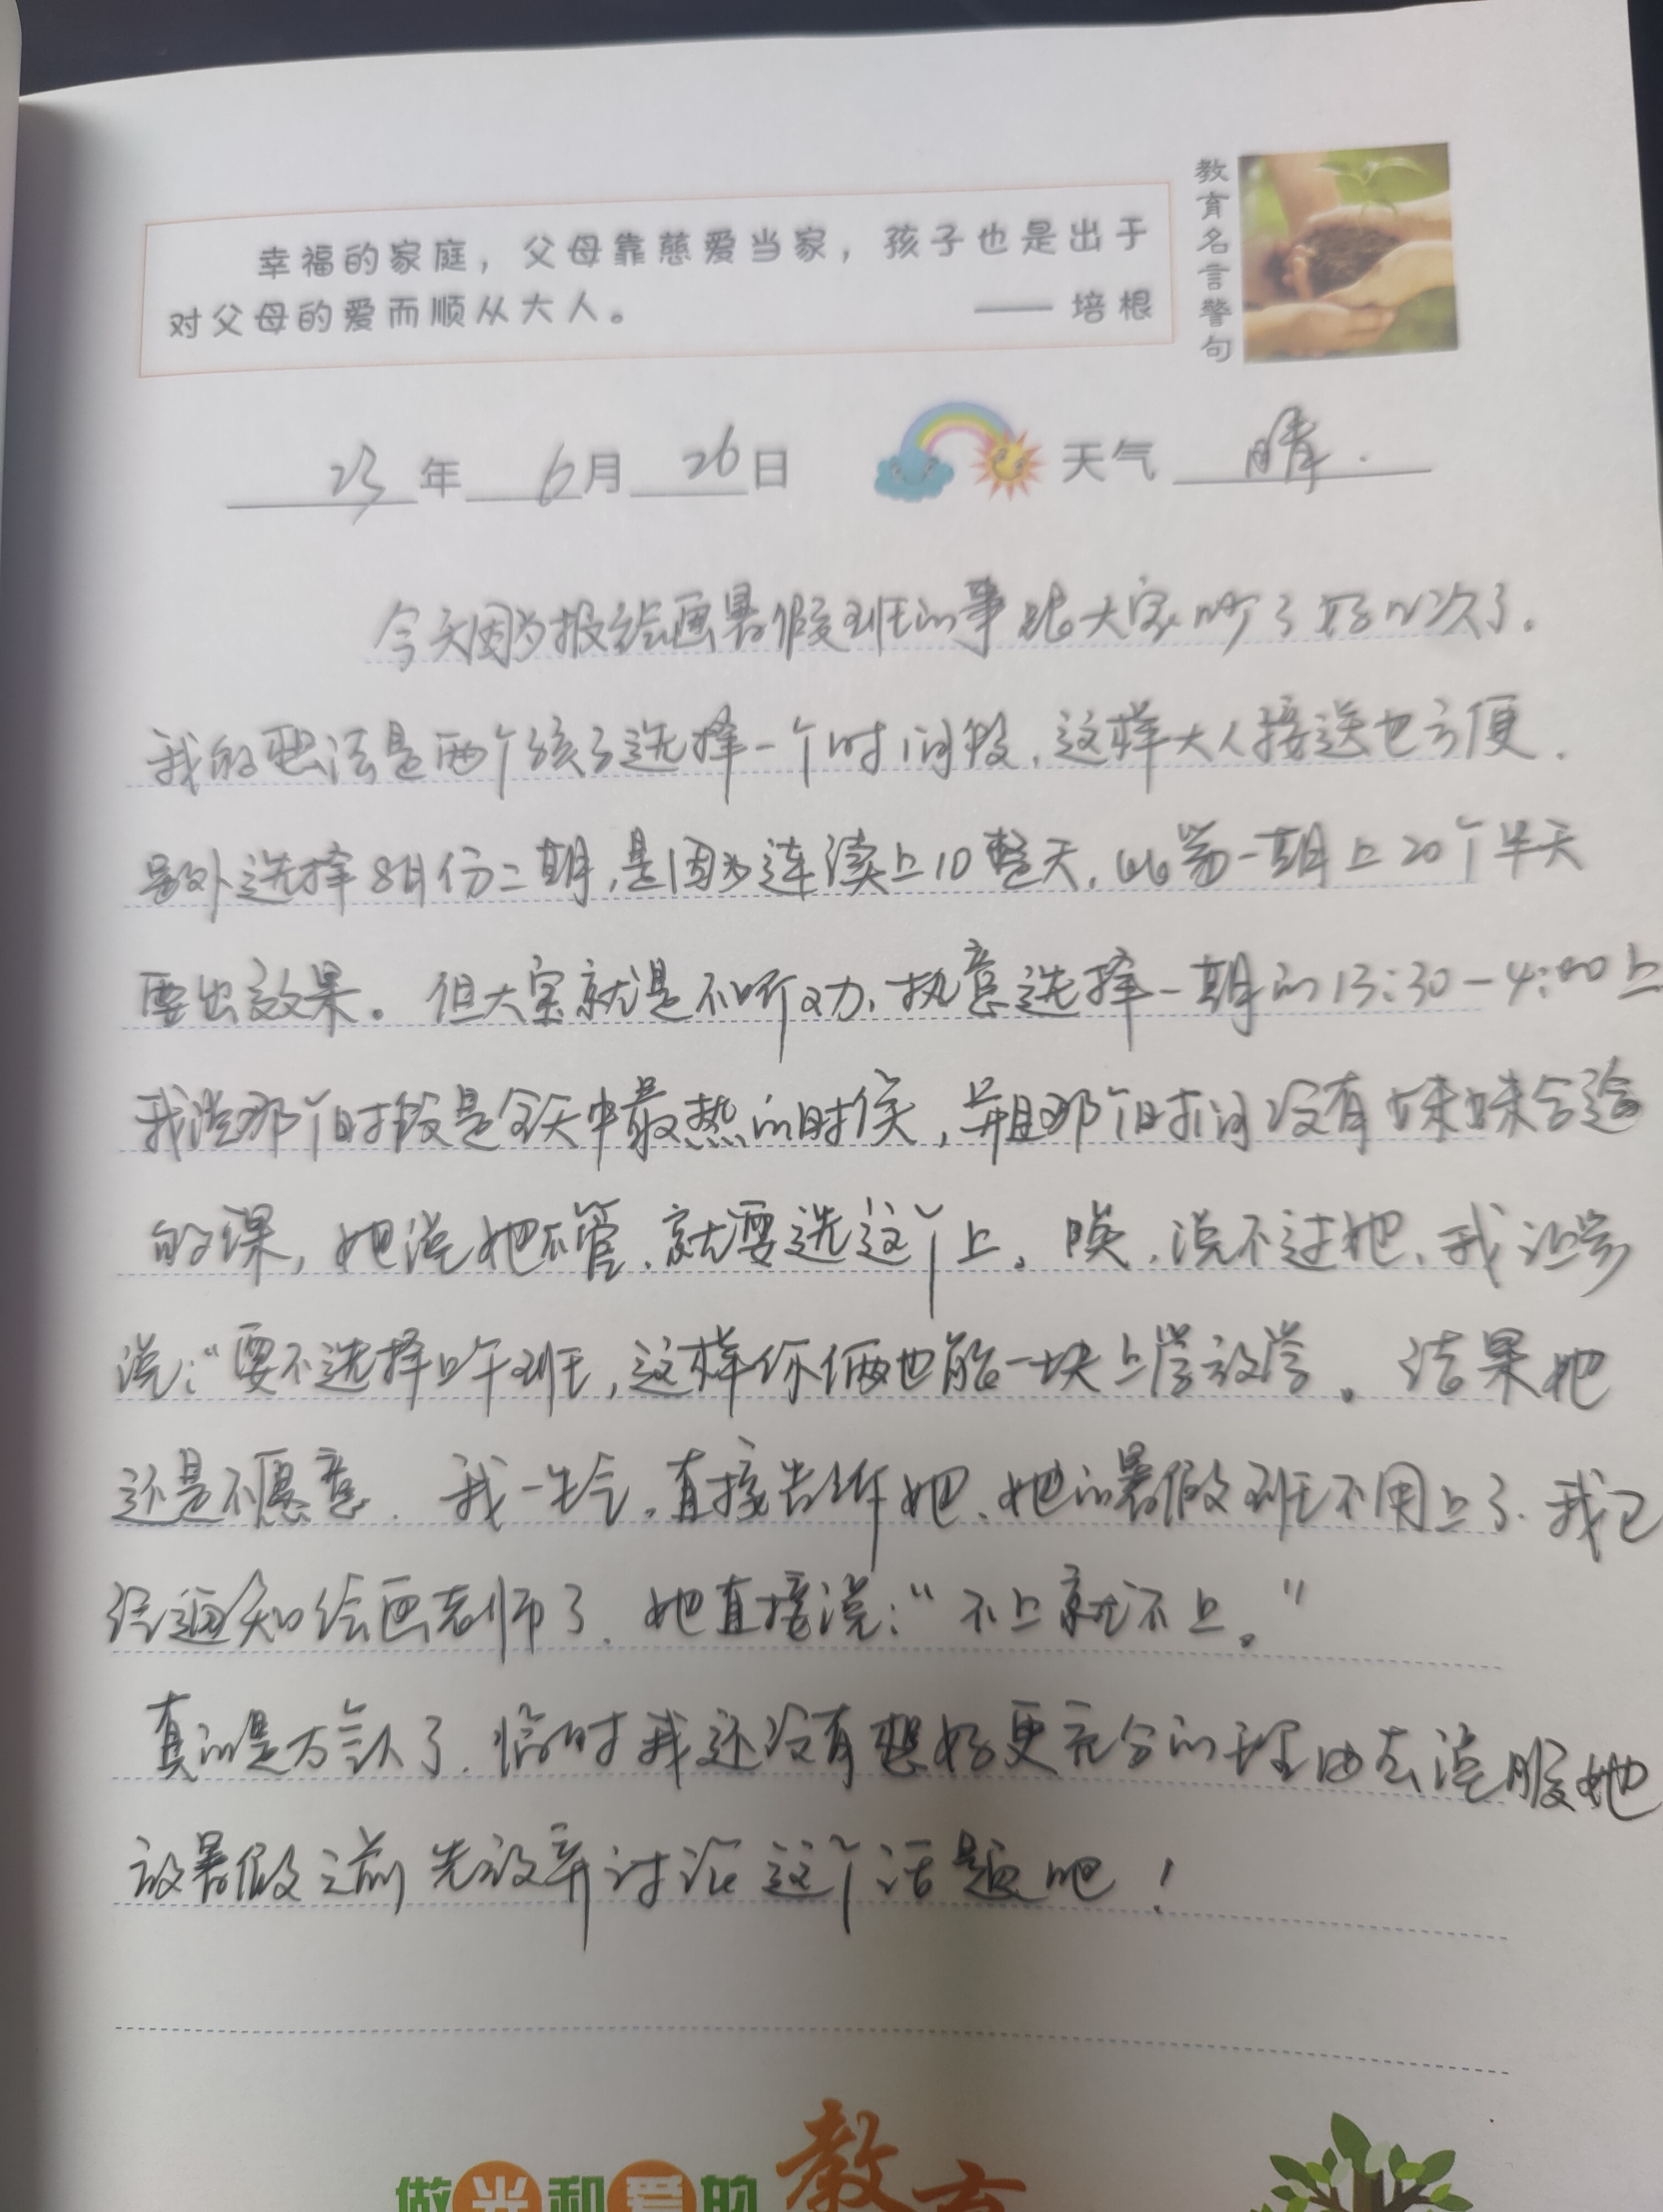 幸福的家庭，父母靠慈爱当家，孩子也是出于
对父母的爱而顺从大人。 —— 培根
教育名言警句
23年 6月 26日 天气 晴.
今天因为报绘画暑假班的事跟大宝吵了好几次了.
我的想法是两个孩子选择一个时间段,这样大人接送也方便.
另外选择8月份二期,是因为连续上10整天,比第一期上20个半天
要出效果。但大宝就是不听劝,执意选择一期的13:30-4:00上
我说那个时段是全天中最热的时侯,并且那个时间没有妹妹合适
的课,她说她不管,就要选这个上。唉,说不过她,我让步
说:“要不选择上午班,这样你俩也能一块上学放学。结果她
还是不愿意.我一生气,直接告诉她,她的暑假班不用上了.我已
经通知绘画老师了.她直接说:“不上就不上。”
真的是方气人了.临时我还没有想好更充分的理由去说服她
放暑假之前先放弃讨论这个话题吧!
做光和爱的教育